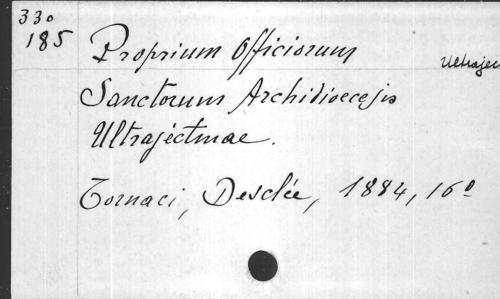 330
185
Proprium Officiorum
Ultrajec
Sanctorum Archidioecesis
Ultrajectinae.
Tornaci, Desclée, 1884, 16º